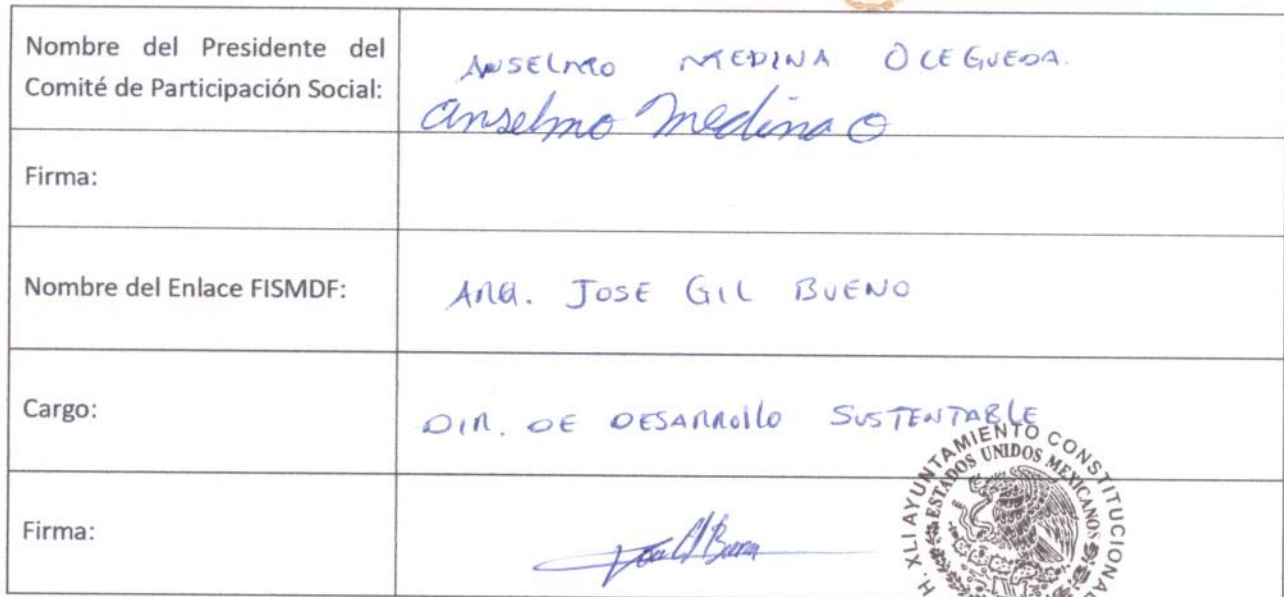 Nombre del Presidente del
Comité de Participación Social:
ANSELMO MEDINA OCEGUEDA.
Anselmo Medina O
Firma:
Nombre del Enlace FISMDF:
ARQ. JOSE GIL BUENO
Cargo:
DIR. DE DESARROLLO SUSTENTABLE
Firma:
H. XLI AYUNTAMIENTO CONSTITUCIONAL
ESTADOS UNIDOS MEXICANOS